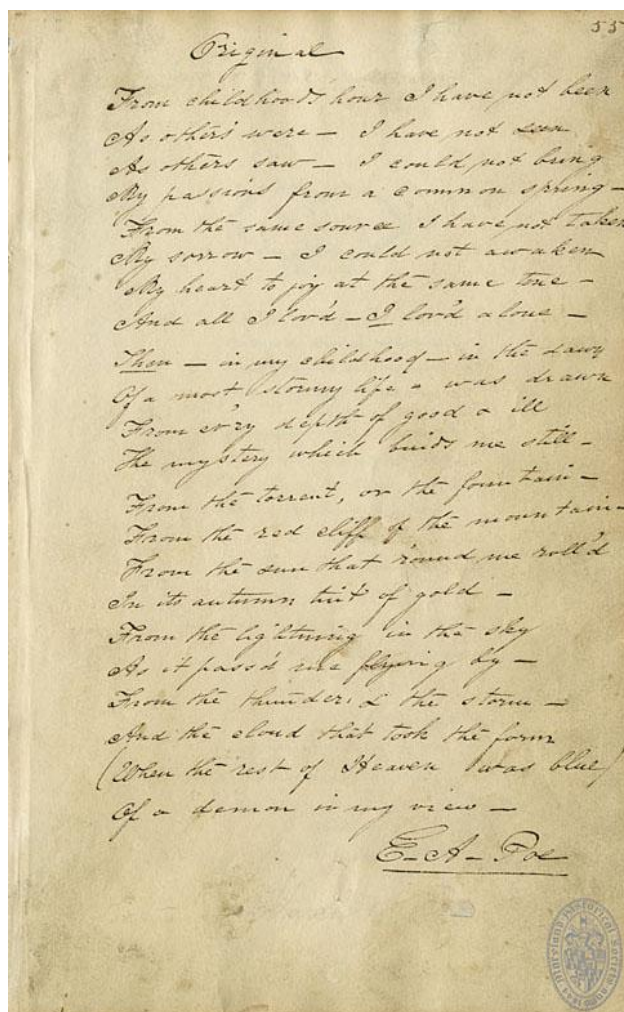 55
Original
From childhood's hour I have not been
As others were — I have not seen
As others saw — I could not bring
My passions from a common spring —
From the same source I have not taken
My sorrow — I could not awaken
My heart to joy at the same tone —
And all I lov'd — I lov'd alone —
Then — in my childhood — in the dawn
Of a most stormy life — was drawn
From ev'ry depth of good & ill
The mystery which binds me still —
From the torrent, or the fountain —
From the red cliff of the mountain —
From the sun that 'round me roll'd
In its autumn tint of gold —
From the lightning in the sky
As it pass'd me flying by —
From the thunder, & the storm —
And the cloud that took the form
(When the rest of Heaven was blue)
Of a demon in my view —
E — A — Poe
Maryland Historical Society